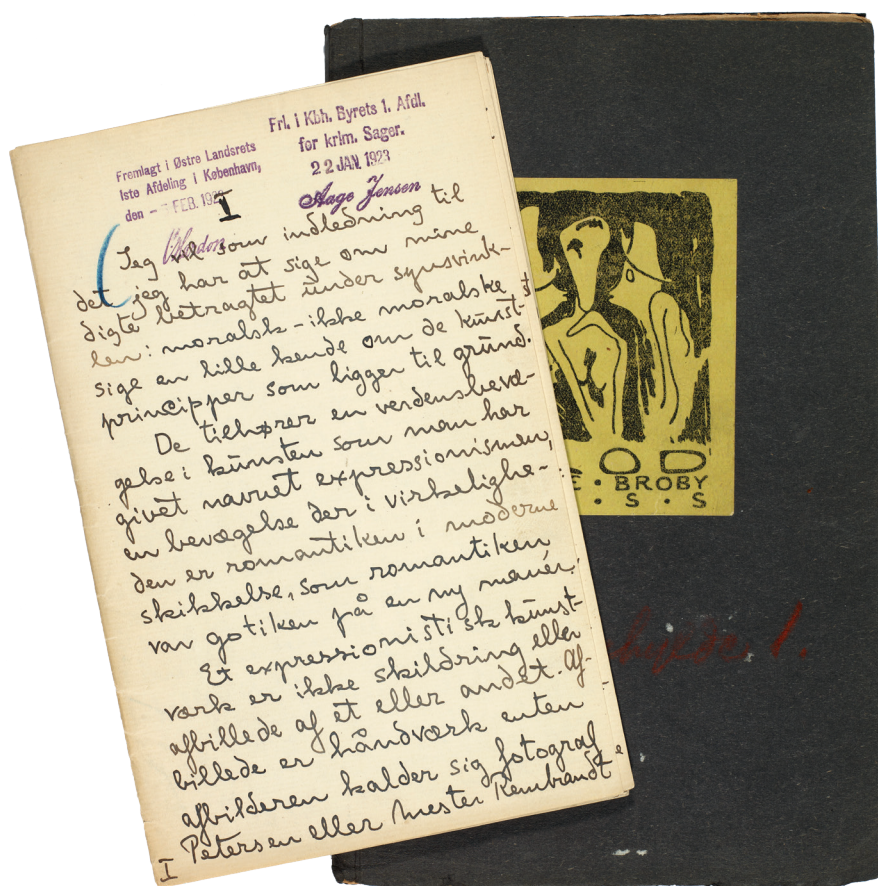 Fremlagt i Østre Landsrets
1ste Afdeling i København,
den - FEB. 192
Frl. i Kbh. Byrets 1. Afdl.
for krim. Sager.
22 JAN. 1923
Aage Jensen
I
Jeg vil som indledning til
det jeg har at sige om mine
digte betragtet under synsvink-
len: moralsk - ikke moralske
sige en lille kende om de kunst-
principper som ligger til grund.
De tilhører en verdensbevæ-
gelse i kunsten som man har
givet navnet expressionismen,
en bevægelse der i virkelighe-
den er romantiken i moderne
skikkelse, som romantiken
var gotiken på en ny manér.
Et expressionistisk kunst-
værk er ikke skildring eller
afbillede af et eller andet. Af-
billede er håndværk enten
afbilderen kalder sig fotograf
Petersen eller mester Rembrandt
I
OD
E · BROBY
: S : S
1.